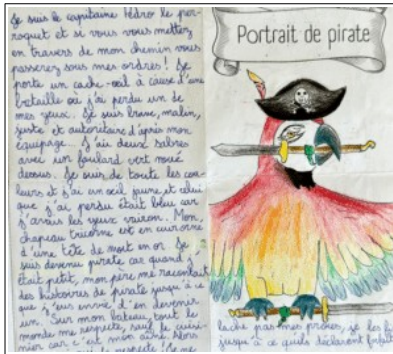 Je suis le capitaine Pédro le per-
roquet et si vous vous mettez
en travers de mon chemin vous
passerez sous mes ordres ! Je
porte un cache-œil à cause d'une
bataille où j'ai perdu un de
mes yeux. Je suis brave, malin,
juste et autoritaire d'après mon
équipage. J'ai deux sabres
avec un foulard vert noué
dessus. Je suis de toutes les cou-
leurs et j'ai un œil jaune et celui
que j'ai perdu était bleu car
j'avais les yeux vairon. Mon
chapeau tricorne est en cuir orné
d'une tête de mort en or. Je
suis devenu pirate car quand j'
était petit, mon père me racontait
des histoires de pirate jusqu'à ce
que j'eus envie d'en devenir
un. Sur mon bateau, tout le
monde me respecte, sauf le cuisi-
nier car c'est mon aîné. Alors
le respecte. Je ne
Portrait de pirate
lache pas mes proies, je les
jusqu'à ce qu'ils déclarent